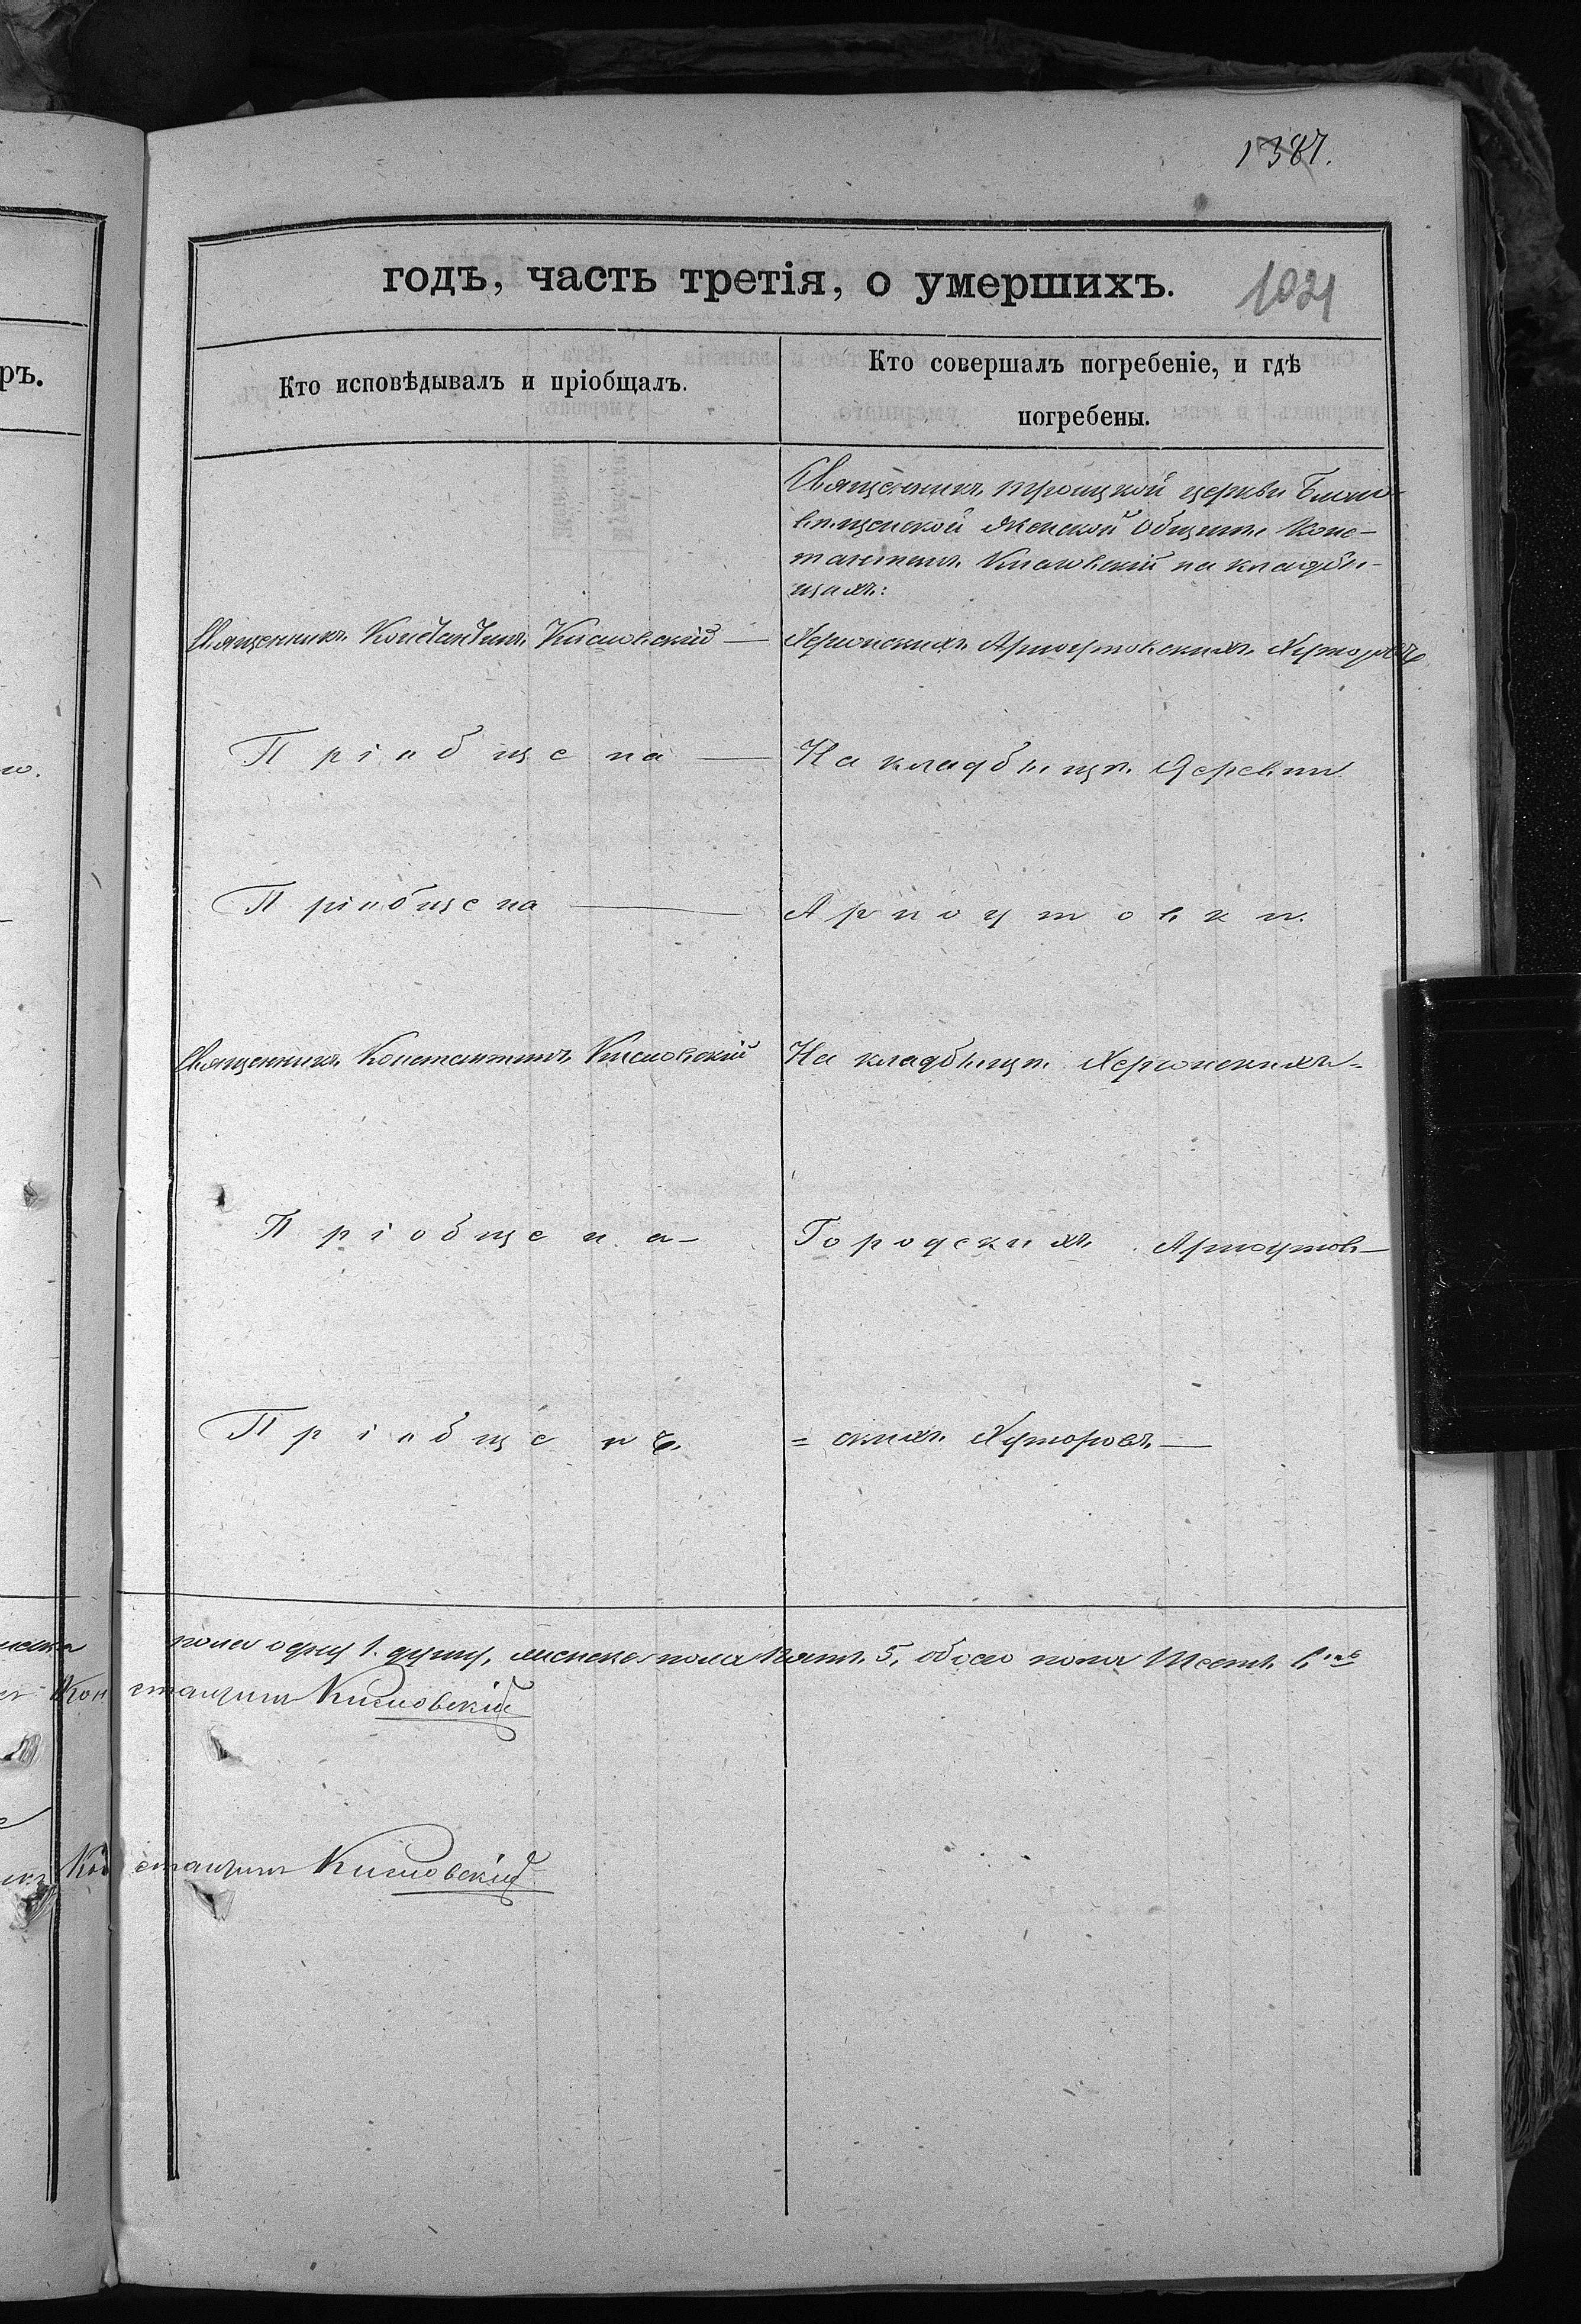 1387.
годъ, часть третія, о умершихъ.
1021
ръ.
Кто исповѣдывалъ и пріобщалъ.
Кто совершалъ погребеніе, и гдѣ
погребены.
Священникъ Троицкой церкви Благо-
вѣщенской Женской Общины Конс-
тантинъ Кисловскій на кладби-
щахъ:
Священникъ Константинъ Кисловскій —
Херсонскихъ Арноутовскихъ Хуторовъ
Пріобщена —
На кладбищѣ Деревни
Пріобщена —
Арноутовки.
Священникъ Константинъ Кисловскій
На кладбищѣ Херсонскихъ-
Пріобщена-
Городскихъ Арноутов-
Пріобщенъ
= скихъ Хуторовъ —
пола одну 1. душу, женска пола пять 5, обоего пола Шесть 6.
Константинъ Кисловскій
Константинъ Кисловскій